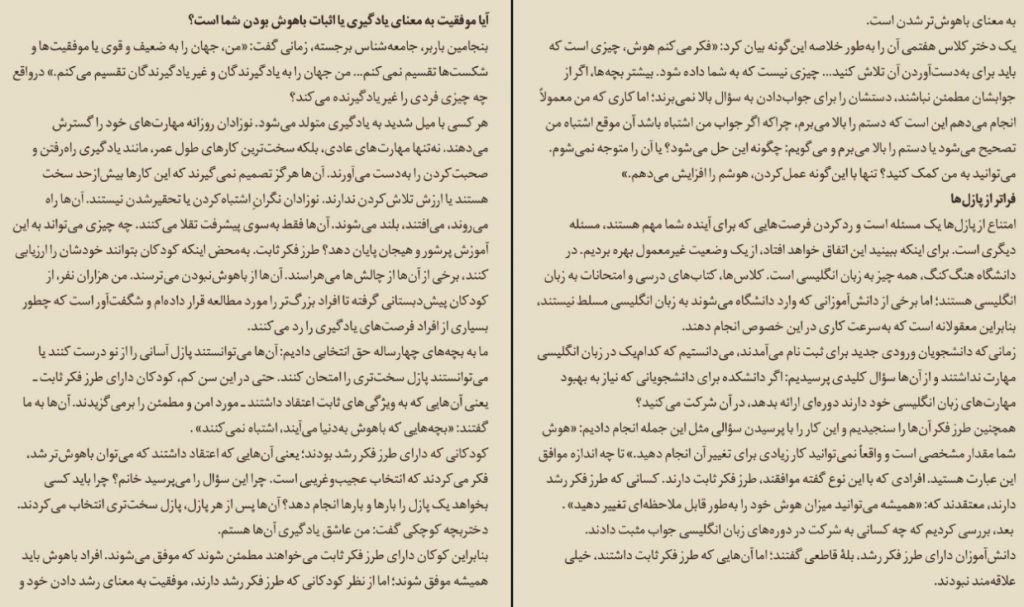 آیا موفقیت به معنای یادگیری یا اثبات باهوش بودن شما است؟
بنجامین باربر، جامعه‌شناس برجسته، زمانی گفت: «من، جهان را به ضعیف و قوی یا موفقیت‌ها و
شکست‌ها تقسیم نمی‌کنم... من جهان را به یادگیرندگان و غیریادگیرندگان تقسیم می‌کنم.» درواقع
چه چیزی فردی را غیریادگیرنده می‌کند؟
هر کسی با میل شدید به یادگیری متولد می‌شود. نوزادان روزانه مهارت‌های خود را گسترش
می‌دهند. نه‌تنها مهارت‌های عادی، بلکه سخت‌ترین کارهای طول عمر، مانند یادگیری راه‌رفتن و
صحبت‌کردن را به‌دست می‌آورند. آن‌ها هرگز تصمیم نمی‌گیرند که این کارها بیش‌ازحد سخت
هستند یا ارزش تلاش‌کردن ندارند. نوزادان نگرانِ اشتباه‌کردن یا تحقیرشدن نیستند. آن‌ها راه
می‌روند، می‌افتند، بلند می‌شوند. آن‌ها فقط به‌سوی پیشرفت تقلا می‌کنند. چه چیزی می‌تواند به این
آموزش پرشور و هیجان پایان دهد؟ طرز فکر ثابت. به‌محض اینکه کودکان بتوانند خودشان را ارزیابی
کنند، برخی از آن‌ها از چالش‌ها می‌هراسند. آن‌ها از باهوش‌نبودن می‌ترسند. من هزاران نفر، از
کودکان پیش‌دبستانی گرفته تا افراد بزرگ‌تر را مورد مطالعه قرار داده‌ام و شگفت‌آور است که چطور
بسیاری از افراد فرصت‌های یادگیری را رد می‌کنند.
ما به بچه‌های چهارساله حق انتخابی دادیم: آن‌ها می‌توانستند پازل آسانی را از نو درست کنند یا
می‌توانستند پازل سخت‌تری را امتحان کنند. حتی در این سن کم، کودکان دارای طرز فکر ثابت ـ
یعنی آن‌هایی که به ویژگی‌های ثابت اعتقاد داشتند ـ مورد امن و مطمئن را برمی‌گزیدند. آن‌ها به ما
گفتند: «بچه‌هایی که باهوش به‌دنیا می‌آیند، اشتباه نمی‌کنند» .
کودکانی که دارای طرز فکر رشد بودند؛ یعنی آن‌هایی که اعتقاد داشتند که می‌توان باهوش‌تر شد،
فکر می‌کردند که انتخاب عجیب‌وغریبی است. چرا این سؤال را می‌پرسید خانم؟ چرا باید کسی
بخواهد یک پازل را بارها و بارها انجام دهد؟ آن‌ها پس از هر پازل، پازل سخت‌تری انتخاب می‌کردند.
دختربچه کوچکی گفت: من عاشق یادگیری آن‌ها هستم.
بنابراین کوکان دارای طرز فکر ثابت می‌خواهند مطمئن شوند که موفق می‌شوند. افراد باهوش باید
همیشه موفق شوند؛ اما از نظر کودکانی که طرز فکر رشد دارند، موفقیت به معنای رشد دادن خود و
به معنای باهوش‌تر شدن است.
یک دختر کلاس هفتمی آن را به‌طور خلاصه این‌گونه بیان کرد: «فکر می‌کنم هوش، چیزی است که
باید برای به‌دست‌آوردن آن تلاش کنید... چیزی نیست که به شما داده شود. بیشتر بچه‌ها، اگر از
جوابشان مطمئن نباشند، دستشان را برای جواب‌دادن به سؤال بالا نمی‌برند؛ اما کاری که من معمولاً
انجام می‌دهم این است که دستم را بالا می‌برم، چراکه اگر جواب من اشتباه باشد آن موقع اشتباه من
تصحیح می‌شود یا دستم را بالا می‌برم و می‌گویم: چگونه این حل می‌شود؟ یا آن را متوجه نمی‌شوم.
می‌توانید به من کمک کنید؟ تنها با این‌گونه عمل‌کردن، هوشم را افزایش می‌دهم.»
فراتر از پازل‌ها
امتناع از پازل‌ها یک مسئله است و رد کردن فرصت‌هایی که برای آینده شما مهم هستند، مسئله
دیگری است. برای اینکه ببینید این اتفاق خواهد افتاد، از یک وضعیت غیرمعمول بهره بردیم. در
دانشگاه هنگ‌کنگ، همه چیز به زبان انگلیسی است. کلاس‌ها، کتاب‌های درسی و امتحانات به زبان
انگلیسی هستند؛ اما برخی از دانش‌آموزانی که وارد دانشگاه می‌شوند به زبان انگلیسی مسلط نیستند،
بنابراین معقولانه است که به‌سرعت کاری در این خصوص انجام دهند.
زمانی‌که دانشجویان ورودی جدید برای ثبت نام می‌آمدند، می‌دانستیم که کدام‌یک در زبان انگلیسی
مهارت نداشتند و از آن‌ها سؤال کلیدی پرسیدیم: اگر دانشکده برای دانشجویانی که نیاز به بهبود
مهارت‌های زبان انگلیسی خود دارند دوره‌ای ارائه بدهد، در آن شرکت می‌کنید؟
همچنین طرز فکر آن‌ها را سنجیدیم و این کار را با پرسیدن سؤالی مثل این جمله انجام دادیم: «هوش
شما مقدار مشخصی است و واقعاً نمی‌توانید کار زیادی برای تغییر آن انجام دهید.» تا چه اندازه موافق
این عبارت هستید. افرادی که با این نوع گفته موافقند، طرز فکر ثابت دارند. کسانی که طرز فکر رشد
دارند، معتقدند که: «همیشه می‌توانید میزان هوش خود را به‌طور قابل ملاحظه‌ای تغییر دهید» .
بعد، بررسی کردیم که چه کسانی به شرکت در دوره‌های زبان انگلیسی جواب مثبت دادند.
دانش‌آموزان دارای طرز فکر رشد، بلهٔ قاطعی گفتند؛ اما آن‌هایی که طرز فکر ثابت داشتند، خیلی
علاقه‌مند نبودند.